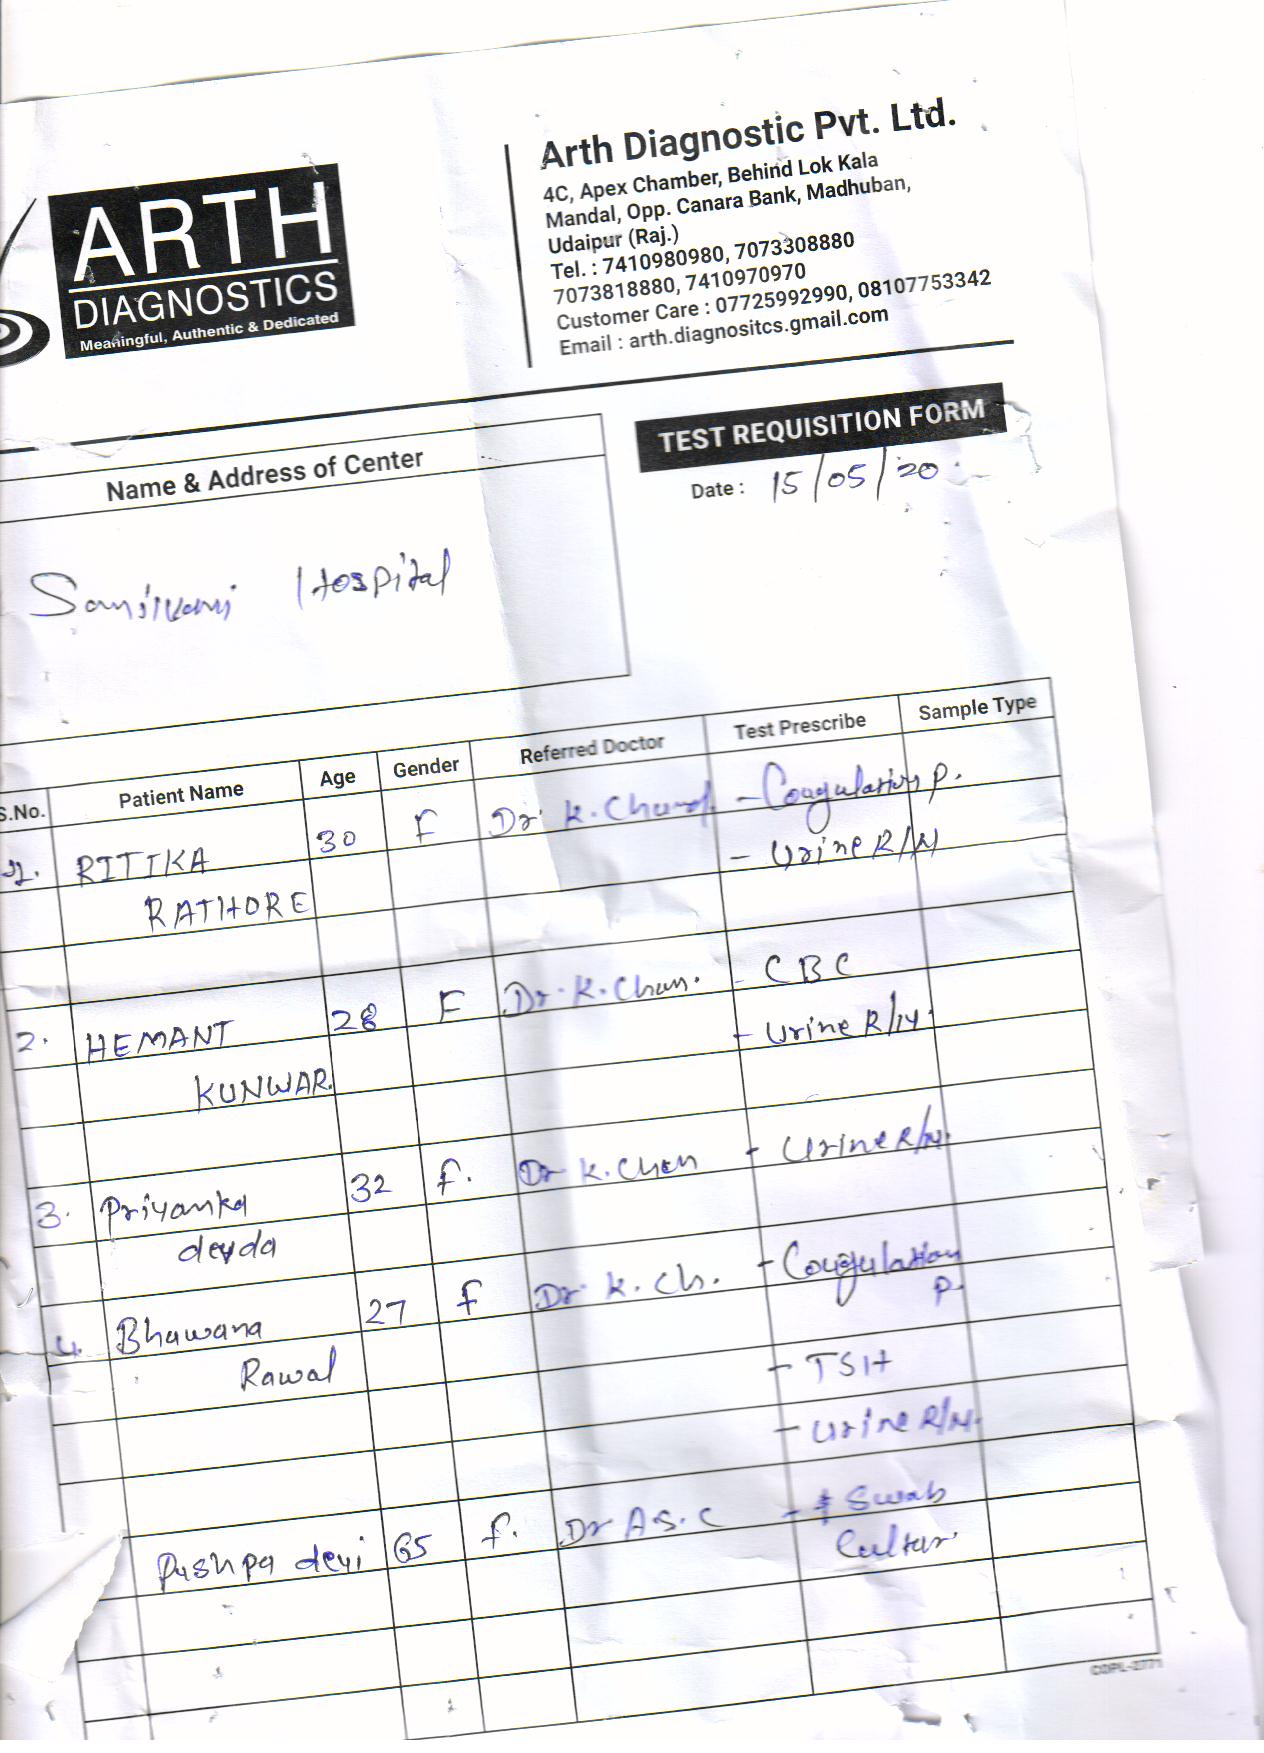 ARTH
DIAGNOSTICS
Meaningful, Authentic & Dedicated
Arth Diagnostic Pvt. Ltd.
4C, Apex Chamber, Behind Lok Kala
Mandal, Opp. Canara Bank, Madhuban,
Udaipur (Raj.)
Tel. : 7410980980, 7073308880
7073818880, 7410970970
Customer Care : 07725992990, 08107753342
Email : arth.diagnositcs.gmail.com
TEST REQUISITION FORM
Date : 15/05/20
Name & Address of Center
Hospital
S.No. Patient Name Age Gender Referred Doctor Test Prescribe Sample Type
1. RITIKA 30 F Dr K. Chand - Coagulation P.
RATHORE - Urine R/M
2. HEMANT 28 F Dr. K. Chan. - CBC
KUNWAR. - Urine R/M.
3. Priyanka 32 F. Dr K. Chan - Urine R/M.
devda
4. Bhawana 27 F Dr K. Ch. - Coagulation
P.
Rawal - TSH
- Urine R/M.
Pushpa devi 65 F. Dr A.S. C - Swab
Cultur
COPL-2771